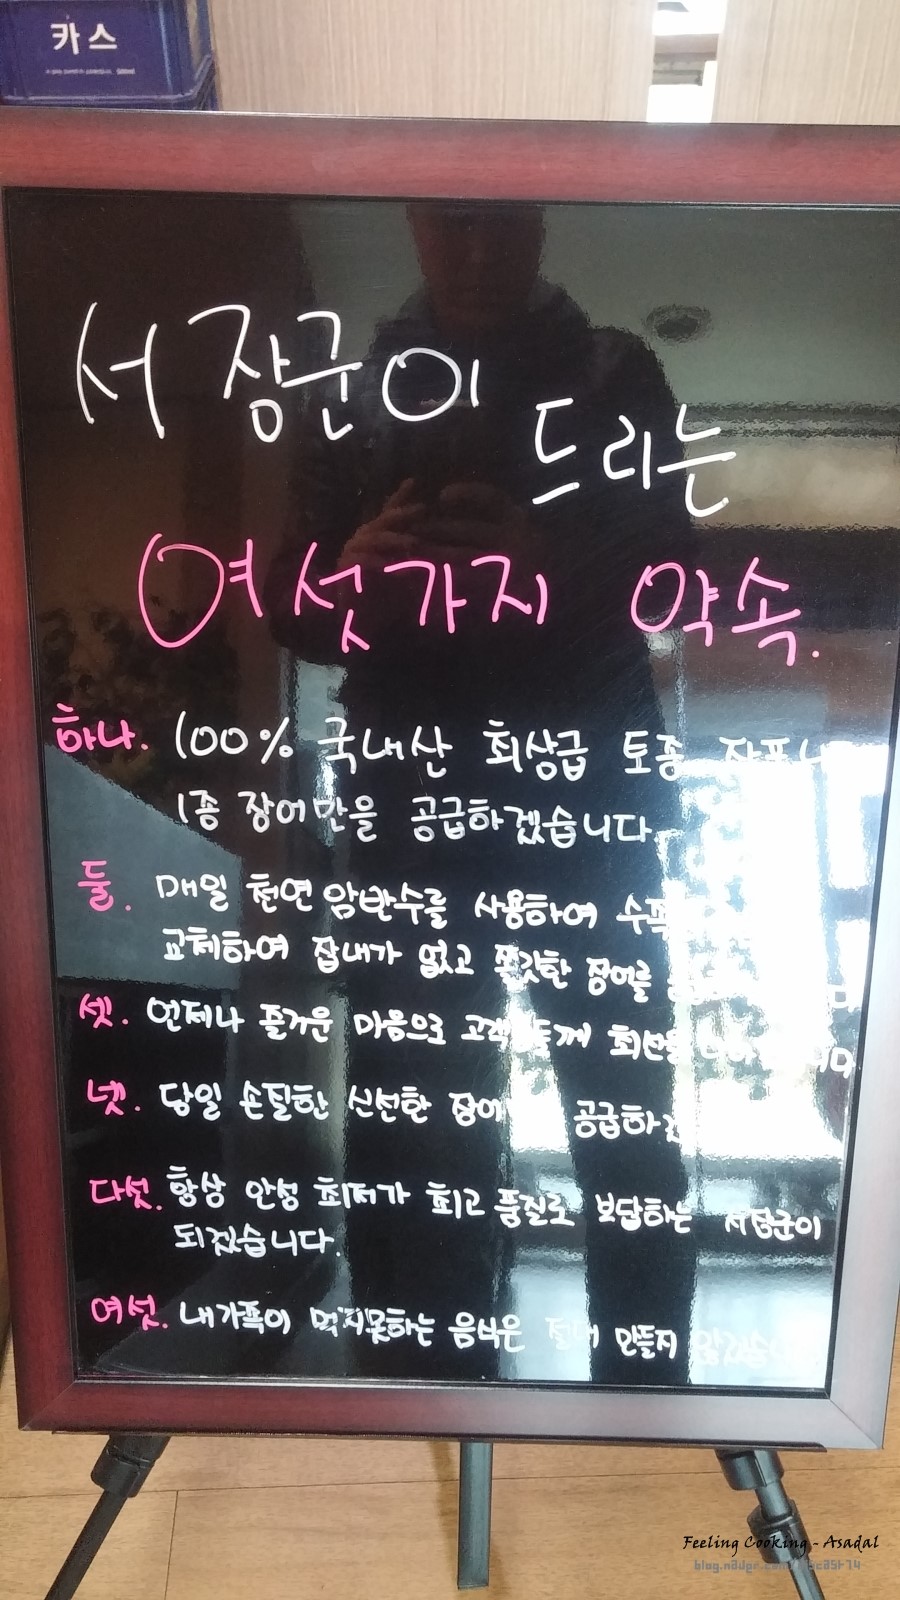 카스
서장군이
드리는
여섯가지 약속.
하나. 100% 국내산 최상급 토종 자포니
1종 장어만을 공급하겠습니다.
둘. 매일 천연 암반수를 사용하여 수족
교체하여 잡내가 없고 쫄깃한 장어를
셋. 언제나 즐거운 마음으로 고객님들께 최선을
넷. 당일 손질한 신선한 장어 공급하겠
다섯. 항상 안성 최저가 최고 품질로 보답하는 서장군이
되겠습니다.
여섯. 내가족이 먹지못하는 음식은 절대 만들지 않겠습니다
Feeling Cooking - Asadal